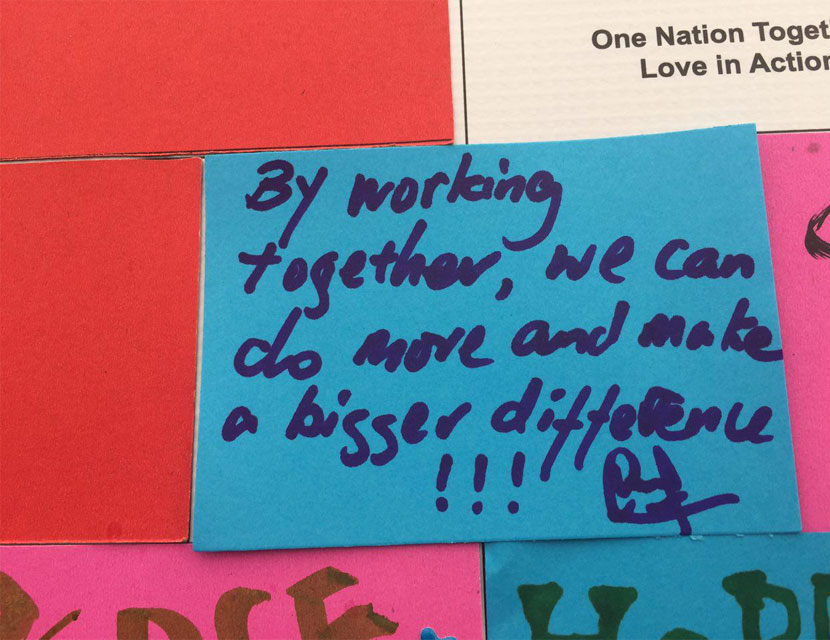 One Nation Toget
Love in Action
By working
together, we can
do more and make
a bigger difference
!!!